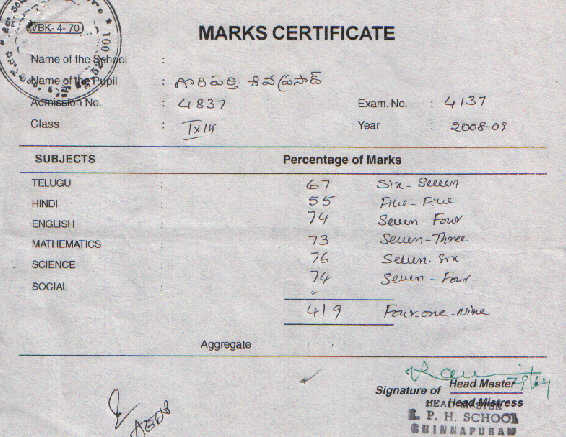 VBK-4-70
MARKS CERTIFICATE
Name of the School :
Name of the Pupil :
Admission No. : 4837 Exam. No. : 4137
Class : IX Year 2008-09
SUBJECTS Percentage of Marks
TELUGU 67 Six-Seven
HINDI 55 Five-Five
ENGLISH 74 Seven Four
MATHEMATICS 73 Seven-Three
SCIENCE 76 Seven-Six
SOCIAL 74 Seven-Four
419 Four-one-Nine
Aggregate
Signature of Head Master
Head Mistress
HEAD MASTER
P. H. SCHOOL
CHINNAPURAM